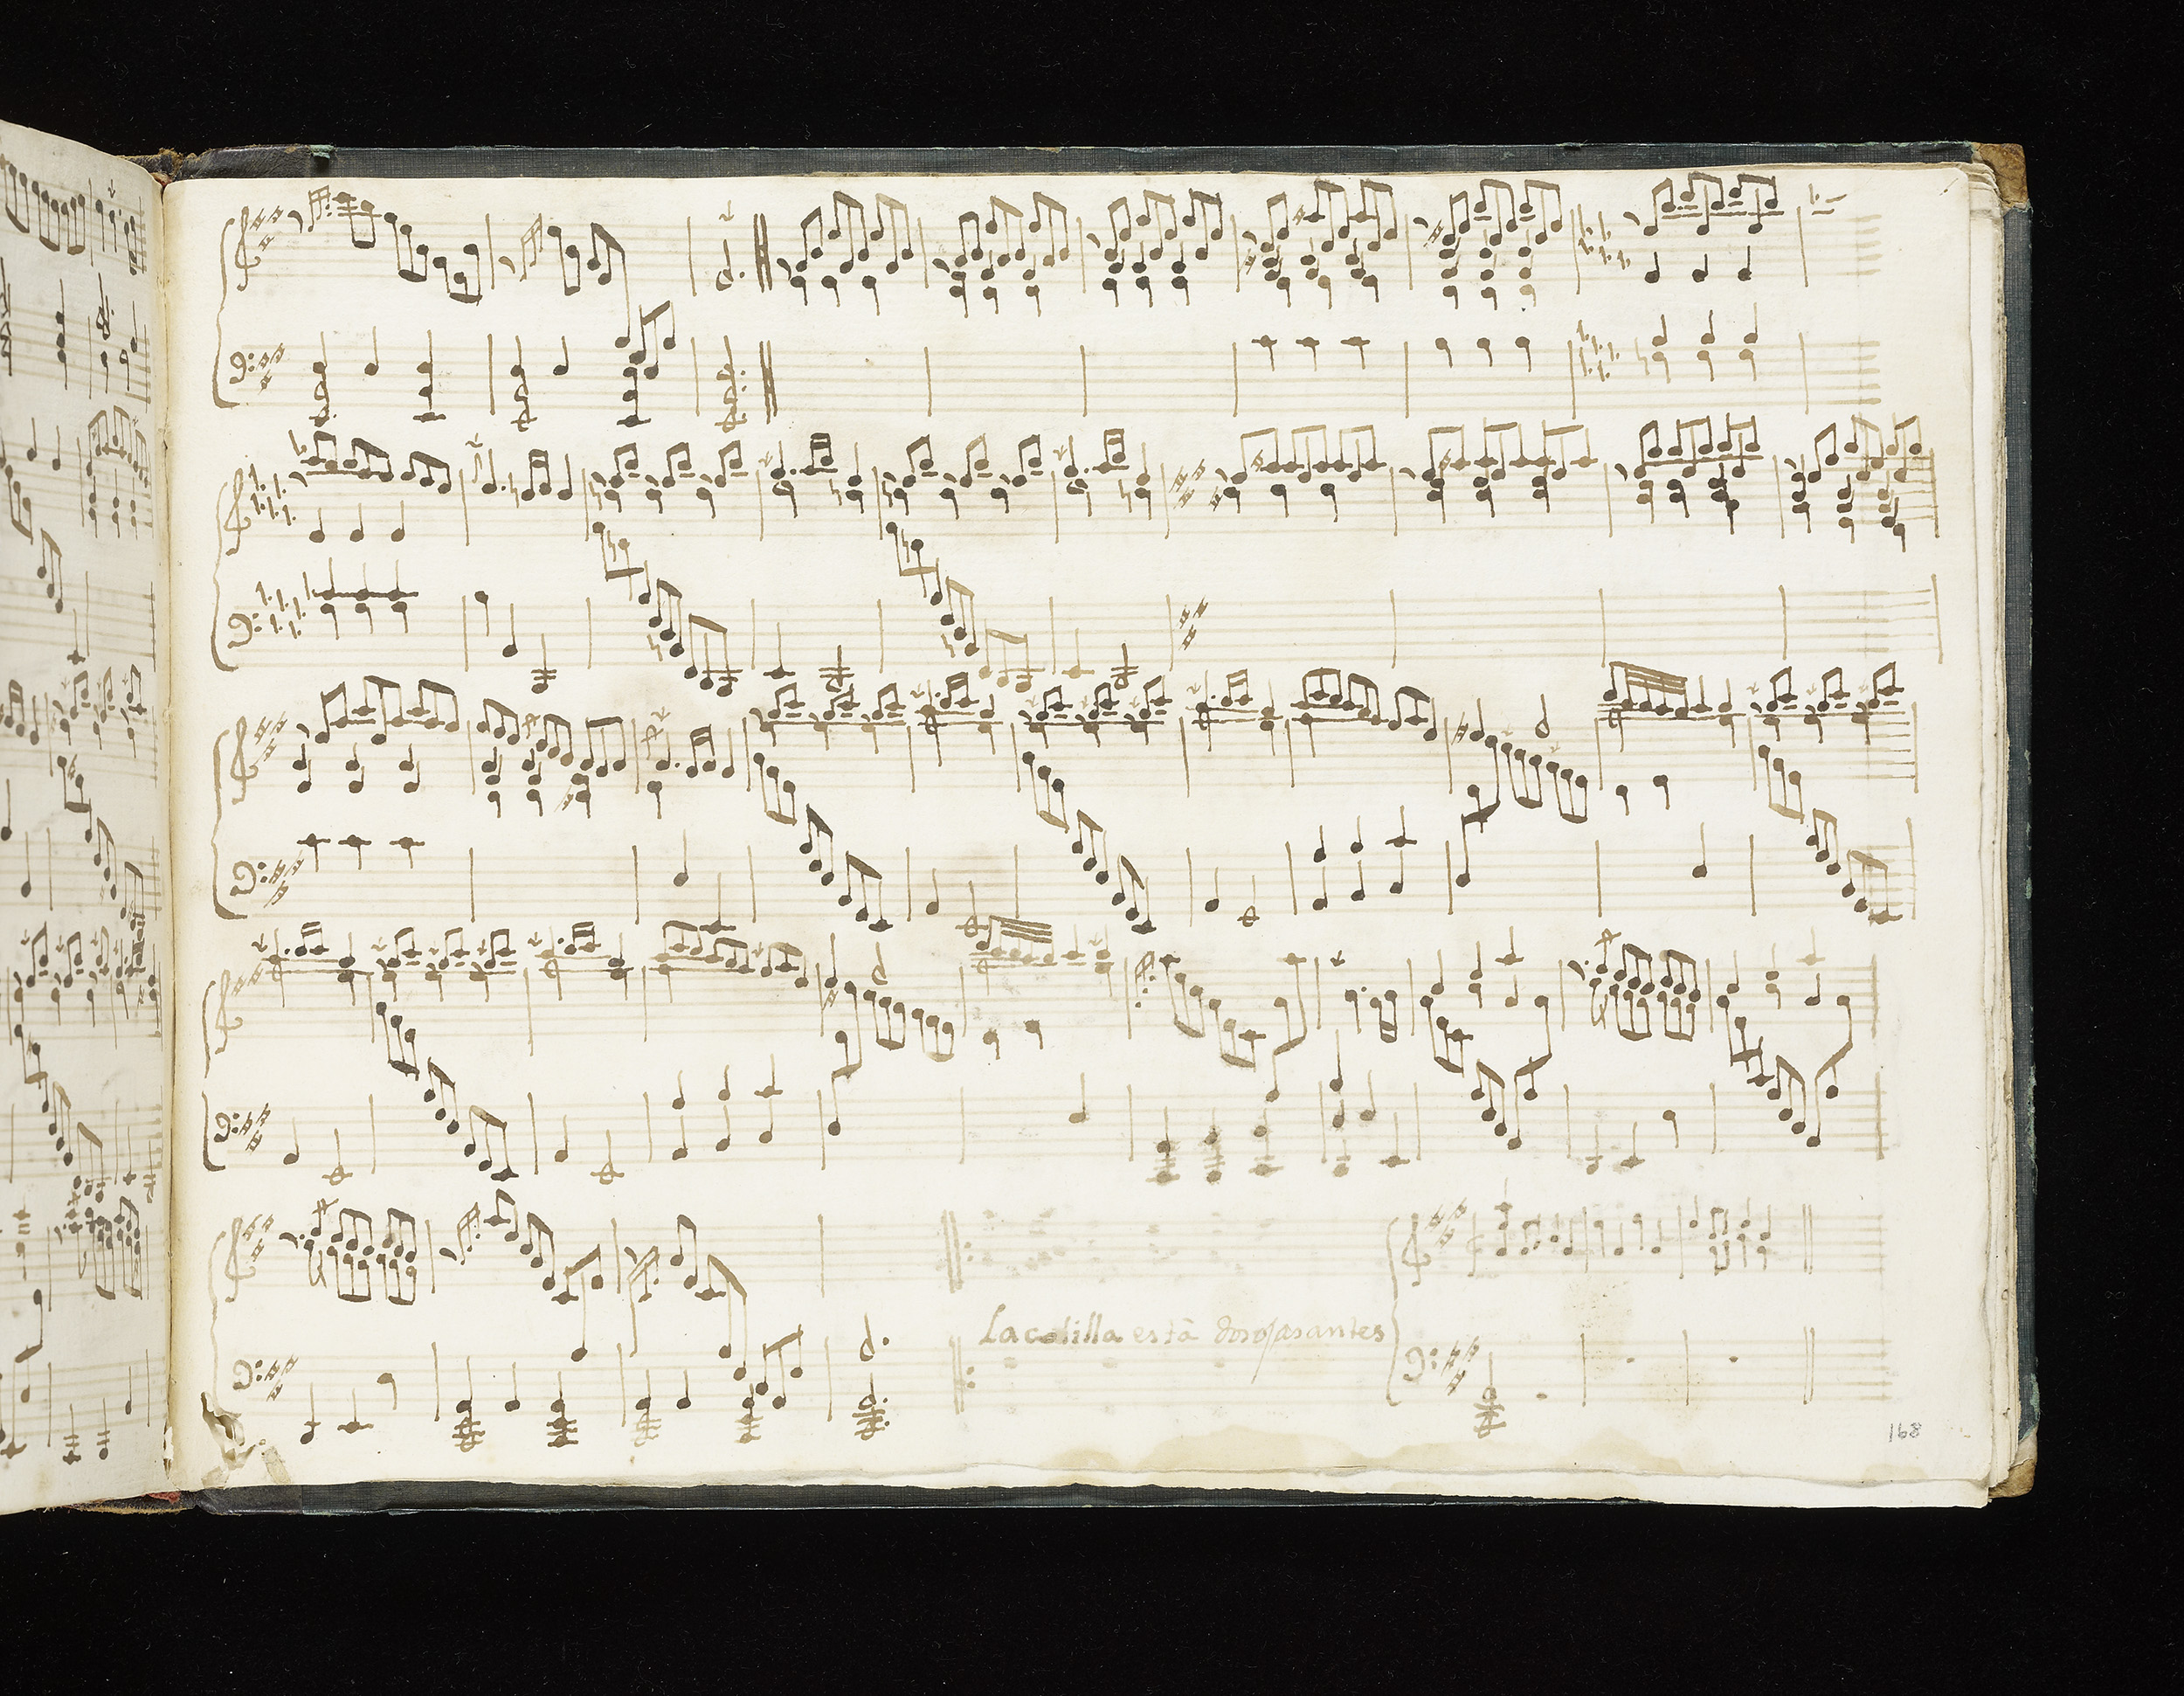 La colilla està dos ojas antes
168